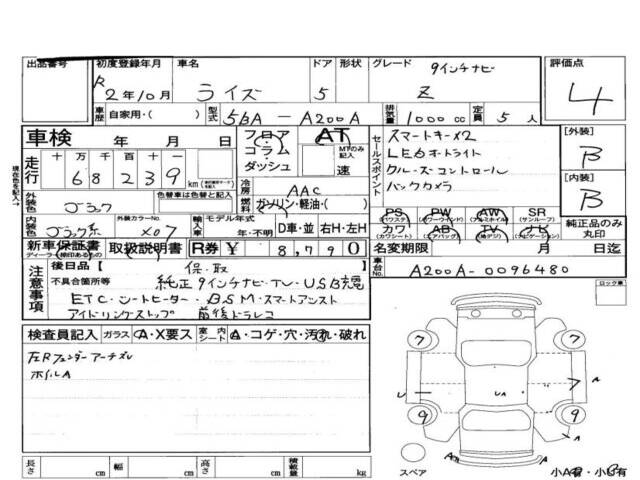 出品番号 初度登録年月 車名 ドア 形状 グレード 9インチナビ 評価点
R2年10月 ライズ 5 Z 4
車歴 自家用・( ) 型式 5BA-A200A 排気量 1000cc 定員 5人
車検 年 月 日
フロア AT
コラム MTのみ記入
ダッシュ 速
現在色を記入→
走行 十万 千百十一
68239 km
冷房 AAC
燃料 ガソリン・軽油・( )
セールスポイント
スマートキー×2
LEDオートライト
クルーズコントロール
バックカメラ
[外装] B
[内装] B
外装色 ブラック 色替車は色替と記入
内装色 ブラック系 外装カラーNo. X07 輸入車 モデル年式 年・不明 D車・並 右H・左H
PS (パワステ) PW (パワーウインド) AW (アルミホイル) SR (サンルーフ)
カワ (カワシート) AB (エアバッグ) TV (地デジ) ナビ (ナビゲーション)
純正品のみ丸印
新車保証書 取扱説明書 R券 ¥ 8,790 名変期限 月 日迄
ディーラー捺印あるもの
車台No. A200A-0096480
注意事項 後日品( 保・取 )
不具合箇所等 純正9インチナビ・TV・USB充電
ETC・シートヒーター・BSM・スマートアシスト
アイドリングストップ 前後ドラレコ
ロック車
検査員記入 ガラス A・X要ス 室内シート A・コゲ・穴・汚れ・破れ
左Rフェンダーアーチズレ
ボルトA
7 7
U 7 A
UA
9 9
A
スペア A
小A有・小B有
長さ cm 幅 cm 高さ cm 積載量 kg